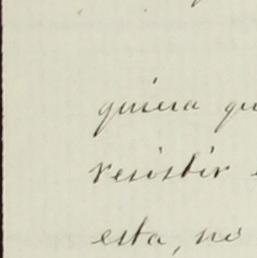 quiera qu
resistir
esta, no